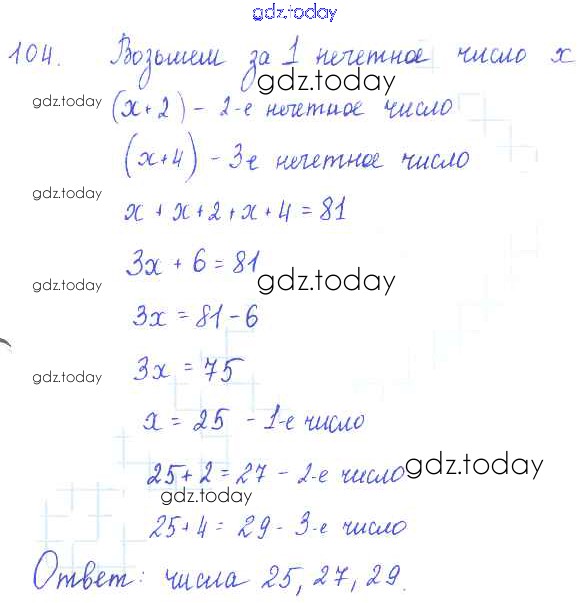 gdz.today
104. Возьмем за 1 нечетное число x
gdz.today
gdz.today
(x+2) - 2-е нечетное число
(x+4) - 3-е нечетное число
gdz.today
x + x + 2 + x + 4 = 81
3x + 6 = 81
gdz.today
gdz.today
3x = 81 - 6
3x = 75
gdz.today
x = 25 - 1-е число
25 + 2 = 27 - 2-е число
gdz.today
gdz.today
25 + 4 = 29 - 3-е число
Ответ: числа 25, 27, 29.